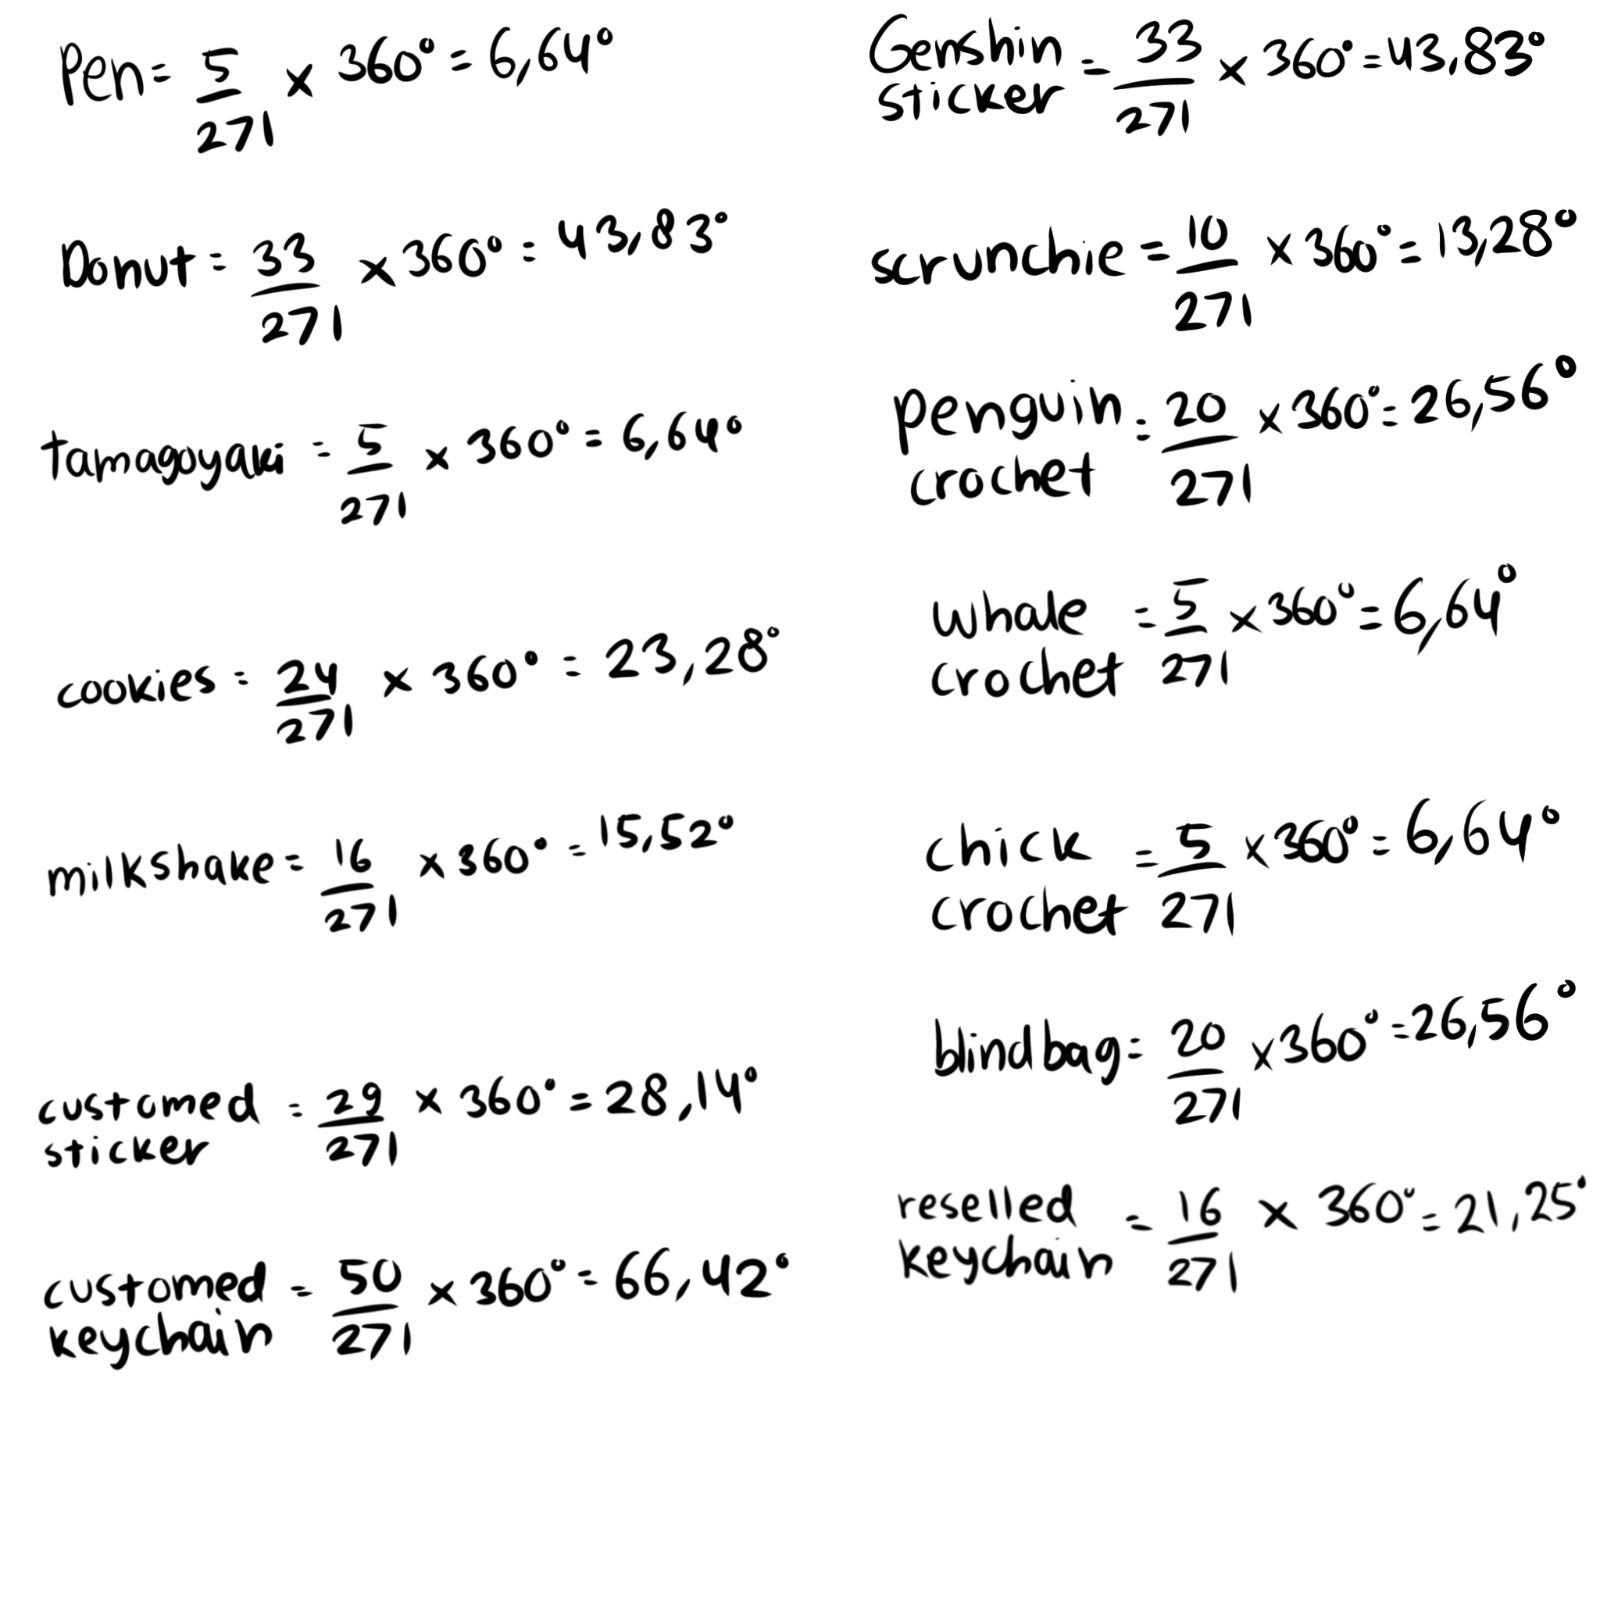 Pen = 5/271 x 360° = 6,64°
Donut = 33/271 x 360° = 43,83°
tamagoyaki = 5/271 x 360° = 6,64°
cookies = 24/271 x 360° = 23,28°
milkshake = 16/271 x 360° = 15,52°
customed
sticker = 29/271 x 360° = 28,14°
customed
keychain = 50/271 x 360° = 66,42°
Genshin
sticker = 33/271 x 360° = 43,83°
scrunchie = 10/271 x 360° = 13,28°
penguin
crochet = 20/271 x 360° = 26,56°
whale
crochet = 5/271 x 360° = 6,64°
chick
crochet = 5/271 x 360° = 6,64°
blindbag = 20/271 x 360° = 26,56°
reselled
keychain = 16/271 x 360° = 21,25°